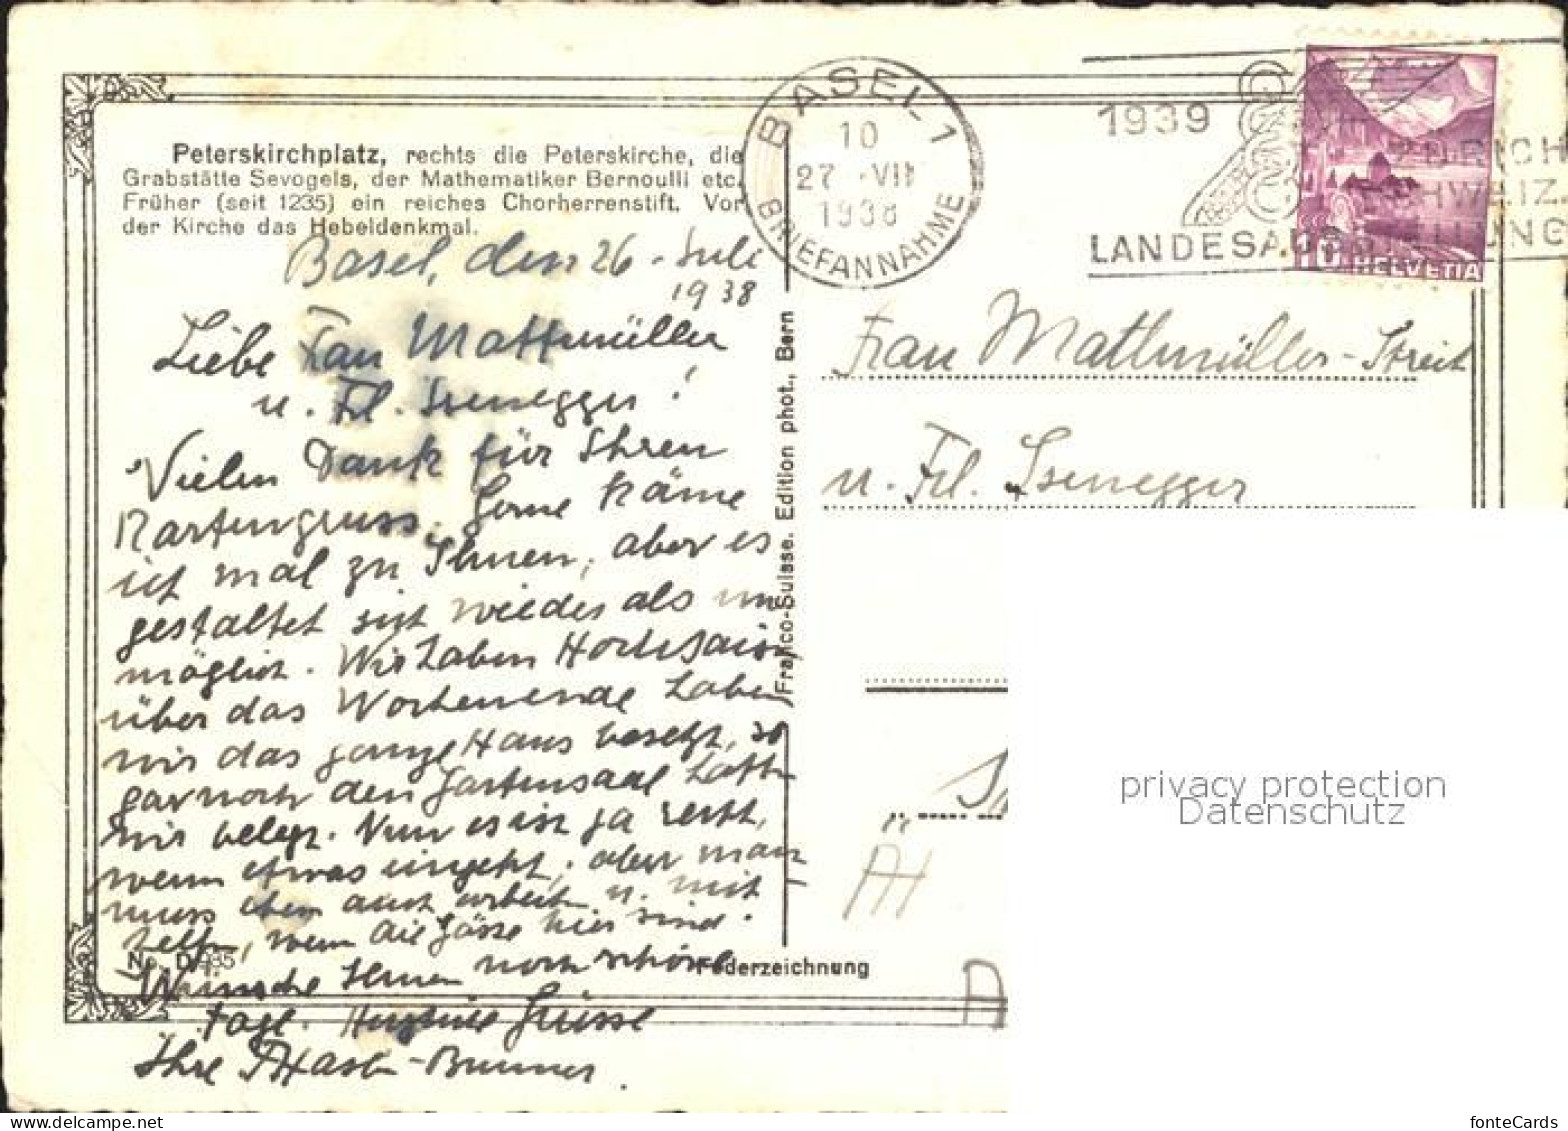 Peterskirchplatz, rechts die Peterskirche, die
Grabstätte Sevogels, der Mathematiker Bernoulli etc.
Früher (seit 1235) ein reiches Chorherrenstift. Vor
der Kirche das Hebeldenkmal.
Basel, den 26. Juli
1938
Liebe Frau Mattmüller
u. Frl. Isenegger!
Vielen Dank für Ihren
Kartengruss. Gerne käme
ich mal zu Ihnen, aber es
gestaltet sich wieder als un
möglich. Wir haben Hochsaison
über das Wochenende haben
wir das ganze Haus besetzt, so
gar noch den Gartensaal hatten
wir belegt. Nun es ist ja recht,
wenn etwas eingeht, aber man
muss eben auch arbeiten u. mit
helfen, wenn die Gäste hier sind.
Wünsche Ihnen noch schöne
Tage. Herzliche Grüsse
Ihre -Brunner.
No. D 935
Federzeichnung
Franco-Suisse. Edition phot., Bern
BASEL 1
10
27. VII
1938
BRIEFANNAHME
1939
ZÜRICH
SCHWEIZ.
LANDESAUSSTELLUNG
10 HELVETIA
Frau Mattmüller-Streit
u. Frl. Isenegger
privacy protection
Datenschutz
fonteCards